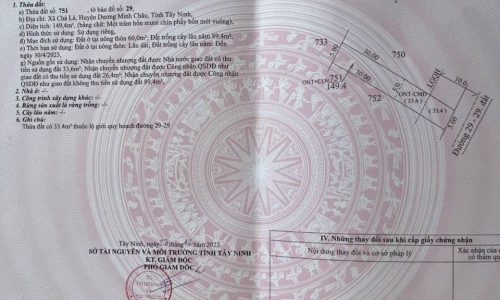 1. Thửa đất:
a) Thửa đất số: 751, tờ bản đồ số: 29,
b) Địa chỉ: Xã Chà Là, Huyện Dương Minh Châu, Tỉnh Tây Ninh,
c) Diện tích: 149,4m², (bằng chữ: Một trăm bốn mươi chín phẩy bốn mét vuông);
d) Hình thức sử dụng: Sử dụng riêng,
đ) Mục đích sử dụng: Đất ở tại nông thôn 60,0m²; Đất trồng cây lâu năm 89,4m²,
e) Thời hạn sử dụng: Đất ở tại nông thôn: Lâu dài; Đất trồng cây lâu năm: Đến
30/4/2023,
g) Nguồn gốc sử dụng: Nhận chuyển nhượng đất được Nhà nước giao đất có thu
tiền sử dụng đất 33,6m²; Nhận chuyển nhượng đất được Công nhận QSDĐ như giao
đất có thu tiền sử dụng đất 26,4m²; Nhận chuyển nhượng đất được Công nhận
QSDĐ như giao đất không thu tiền sử dụng đất 89,4m²,
2. Nhà ở: -/-
3. Công trình xây dựng khác: -/-
4. Rừng sản xuất là rừng trồng: -/-
5. Cây lâu năm: -/-
6. Ghi chú:
Thửa đất có 33.4m² thuộc lộ giới quy hoạch đường 29-29
733
5.00
30.00
750
ONT+CLN 751
149.4
30.00
752
LGQH
10.0
ONT-CMĐ
(33.6)
(33.4)
5.00
Đường 29 - 29 đất
Tây Ninh, ngày tháng năm 2022
SỞ TÀI NGUYÊN VÀ MÔI TRƯỜNG TỈNH TÂY NINH
KT. GIÁM ĐỐC
PHÓ GIÁM ĐỐC
IV. Những thay đổi sau khi cấp giấy chứng nhận
Nội dung thay đổi và cơ sở pháp lý
Xác nhận của
có thẩm qu